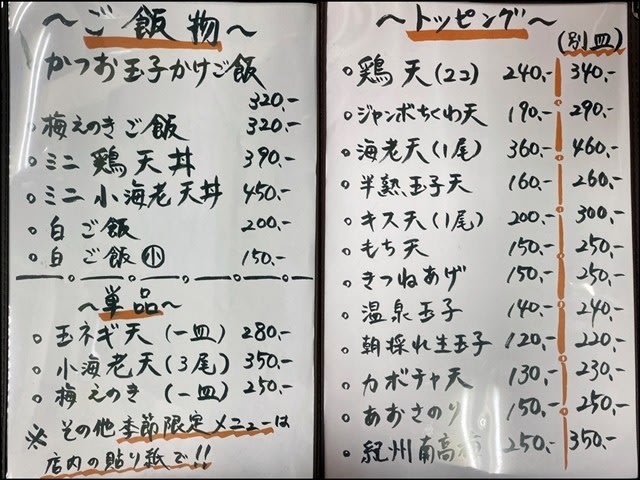 ～ご飯物～
かつお玉子かけご飯
320.-
。梅えのきご飯 320.-
。ミニ鶏天丼 390.-
。ミニ小海老天丼 450.-
。白ご飯 200.-
。白ご飯㊙小 150.-
～単品～
。玉ネギ天(一皿) 280.-
。小海老天(3尾) 350.-
。梅えのき(一皿) 250.-
※その他季節限定メニューは
店内の貼り紙で!!
～トッピング～
(別皿)
。鶏天(2コ) 240.- 340.-
。ジャンボちくわ天 190.- 290.-
。海老天(1尾) 360.- 460.-
。半熟玉子天 160.- 260.-
。キス天(1尾) 200.- 300.-
。もち天 150.- 250.-
。きつねあげ 150.- 250.-
。温泉玉子 140.- 240.-
。朝採れ生玉子 120.- 220.-
。カボチャ天 130.- 230.-
。あおさのり 150.- 250.-
。紀州南高梅 250.- 350.-